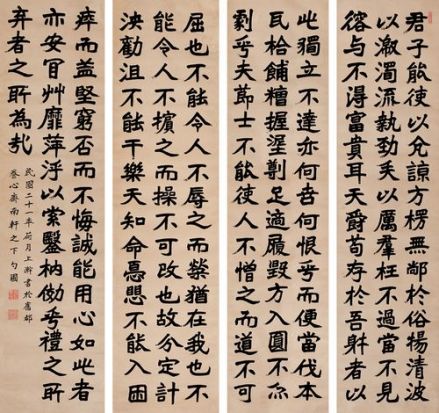 君子能使以亢諒方楞無鄰於俗揚清波
以激濁流執勁矢以厲羣枉不過當不見
容與不得富貴耳天爵苟存於吾躰者以
此獨立不達亦何苦何恨乎而便當伐本
瓦合餔糟握埿剿足適履毀方入圓不亦
劇乎夫節士不能使人不憎之而道不可
屈也不能令人不辱之而榮猶在我也不
能令人不擯之而操不可改也故分定計
決勸沮不能干樂天知命憂懼不能入困
瘁而益堅窮否而不悔誠能用心如此者
亦安肎艸靡萍浮以索鑿枘傚乎禮之所
棄者之所為哉
民國二十一年荷月上澣書於舊都
養心齋南軒之下勺園